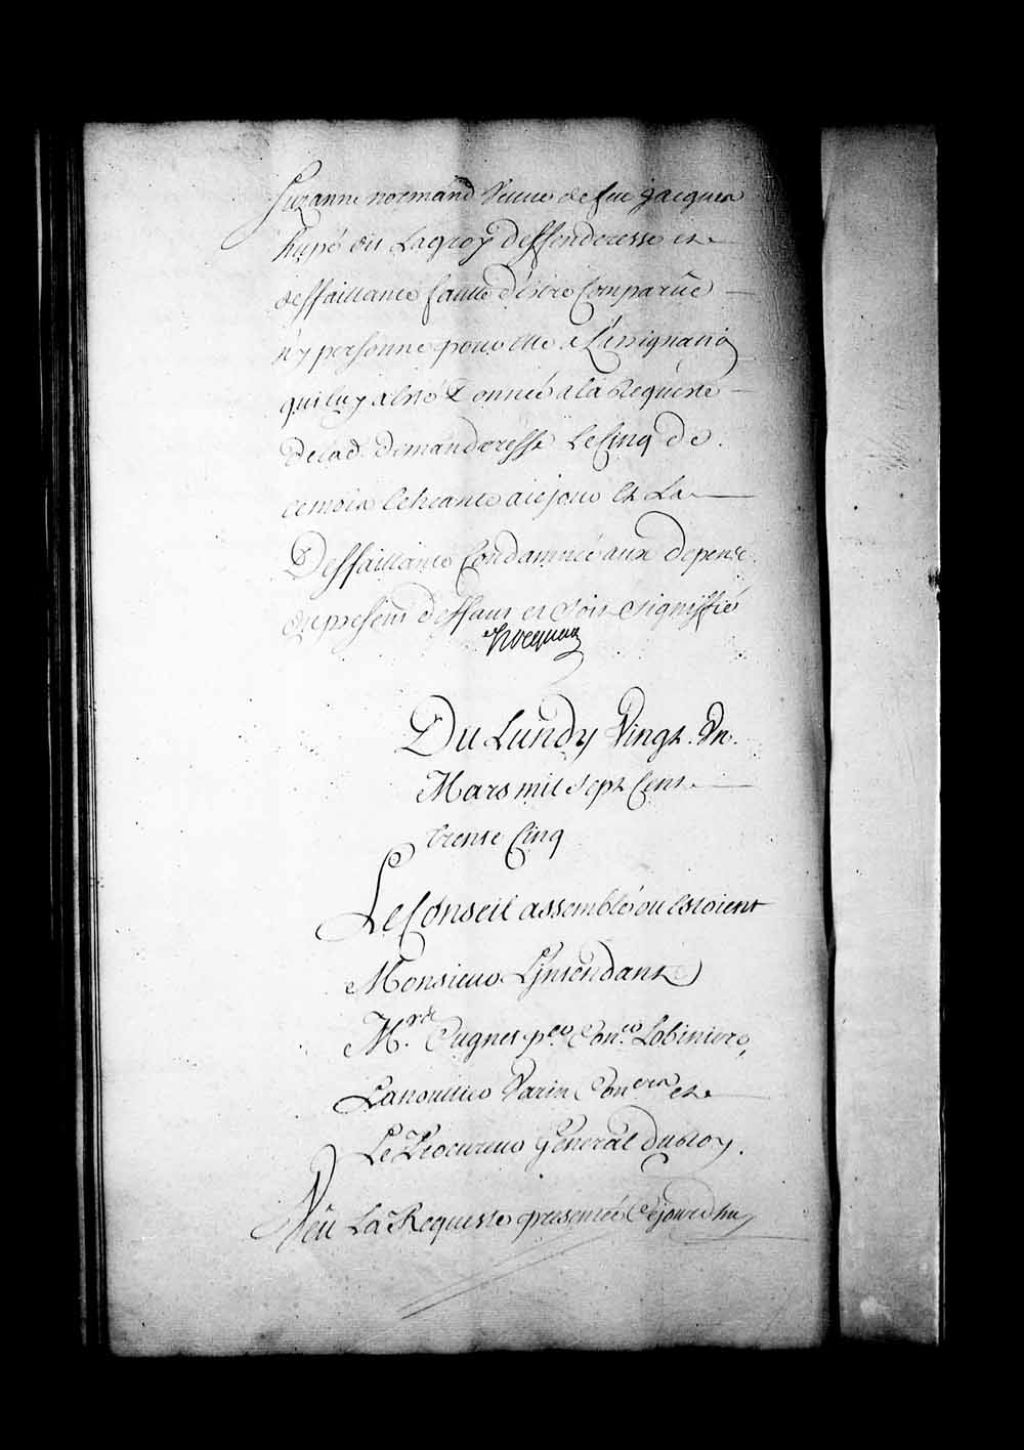 Suzanne normand Veuve de feu Jacques
hupé dit Lagroy deffenderesse et
deffaillante faulte d'estre Comparüe
n'y personne pour elle a L'assignation
qui luy a Esté Donnée a la Requeste
De lad. Demanderesse Le Cinq de
ce mois Echeante a ce jour Et La
Deffaillante Condamnée aux depens
du present deffaut et soit signiffié
Hocquart
Du Lundy Vingt. Un.
Mars mil sept Cent
trente Cinq
Le Conseil assemblé ou Estoient
Monsieur L'Intendant
M.rs Cugnet p.er Con.er Lotbiniere,
Lanoullier Varin Con.ers et
Le Procureur General du Roy.
Veu La Requeste presentée Cejourdhuy